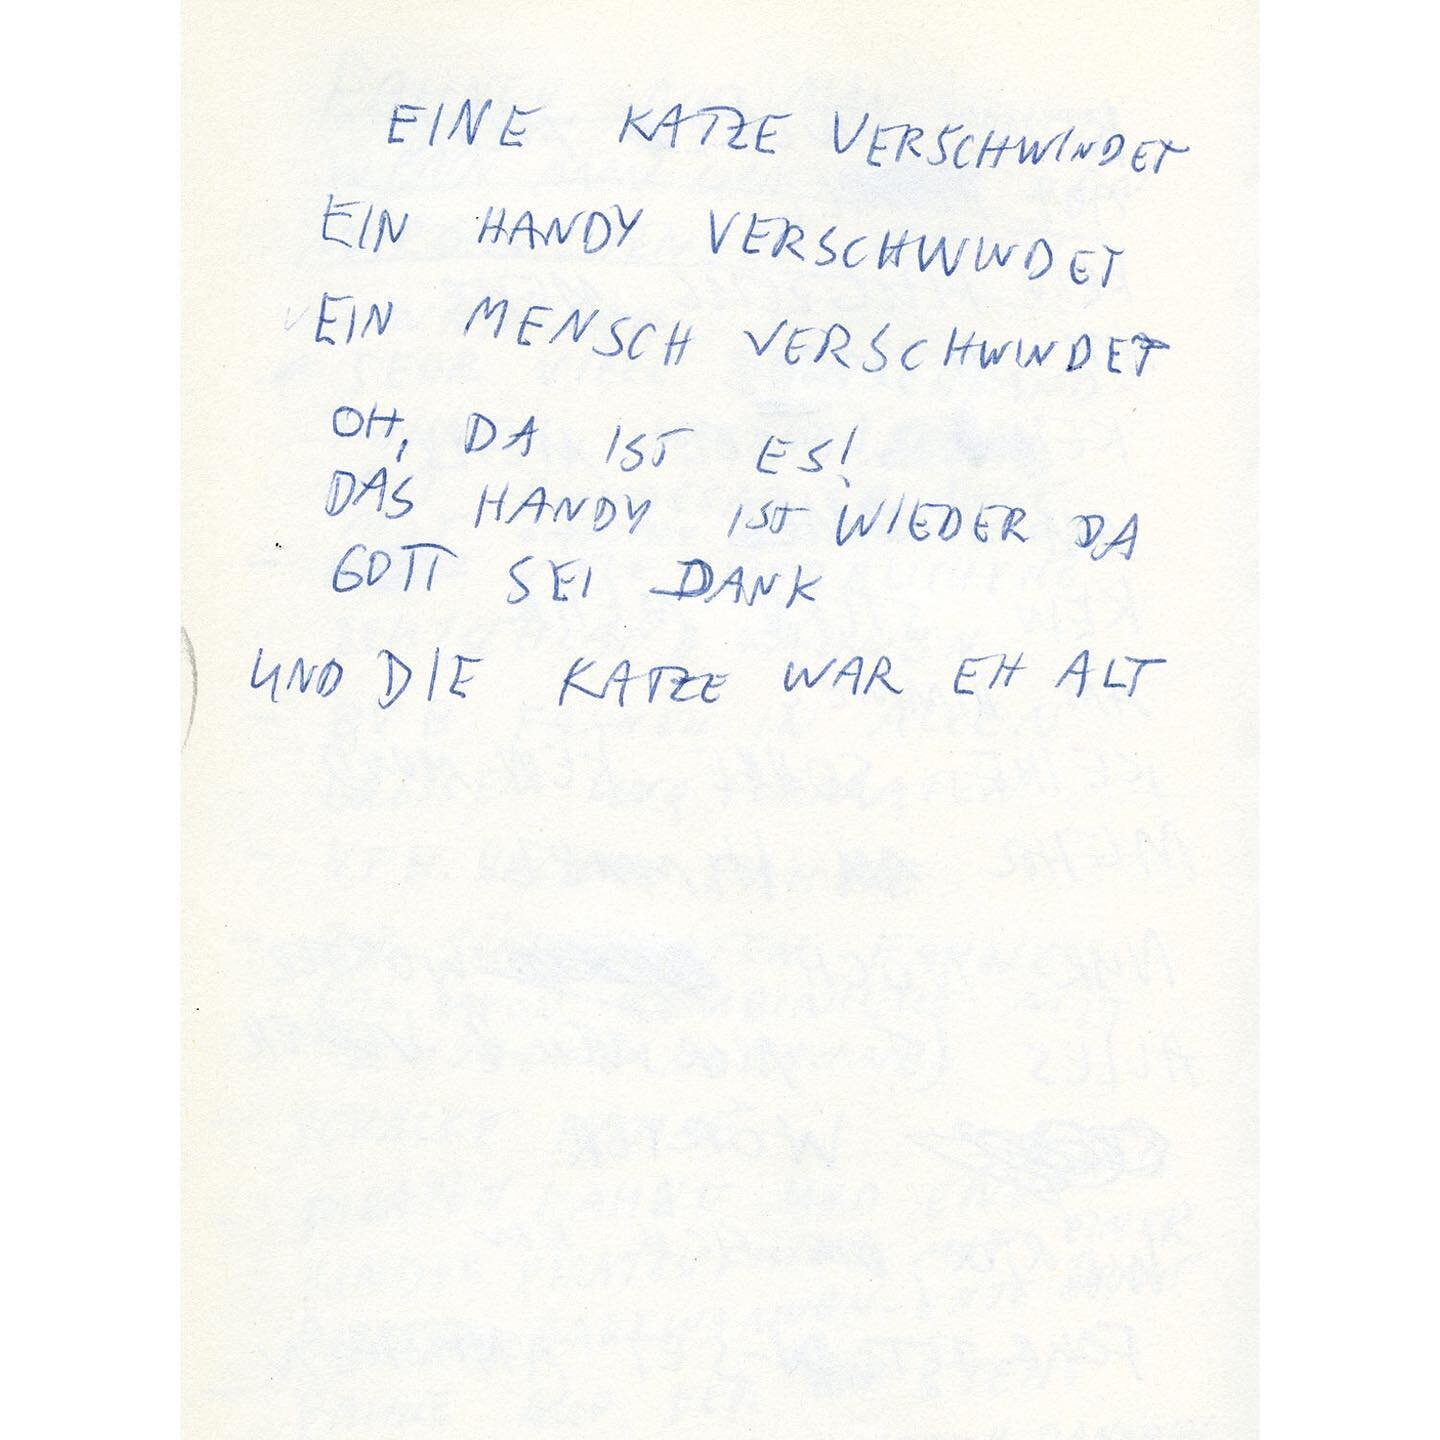 EINE KATZE VERSCHWINDET
EIN HANDY VERSCHWINDET
EIN MENSCH VERSCHWINDET
OH, DA IST ES!
DAS HANDY IST WIEDER DA
GOTT SEI DANK
UND DIE KATZE WAR EH ALT